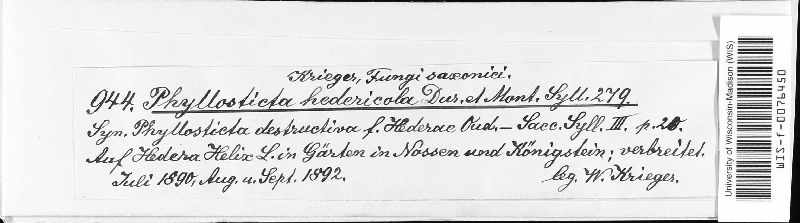 Krieger, Fungi saxonici.
944. Phyllosticta hedericola Dur. et Mont. Syll. 279.
Syn. Phyllosticta destructiva f. Hederae Oud. — Sacc. Syll. III. p. 20.
Auf Hedera Helix L. in Gärten in Nossen und Königstein; verbreitet.
Juli 1890, Aug. u. Sept. 1892. leg. W. Krieger.
University of Wisconsin-Madison (WIS)
WIS-f-0076450